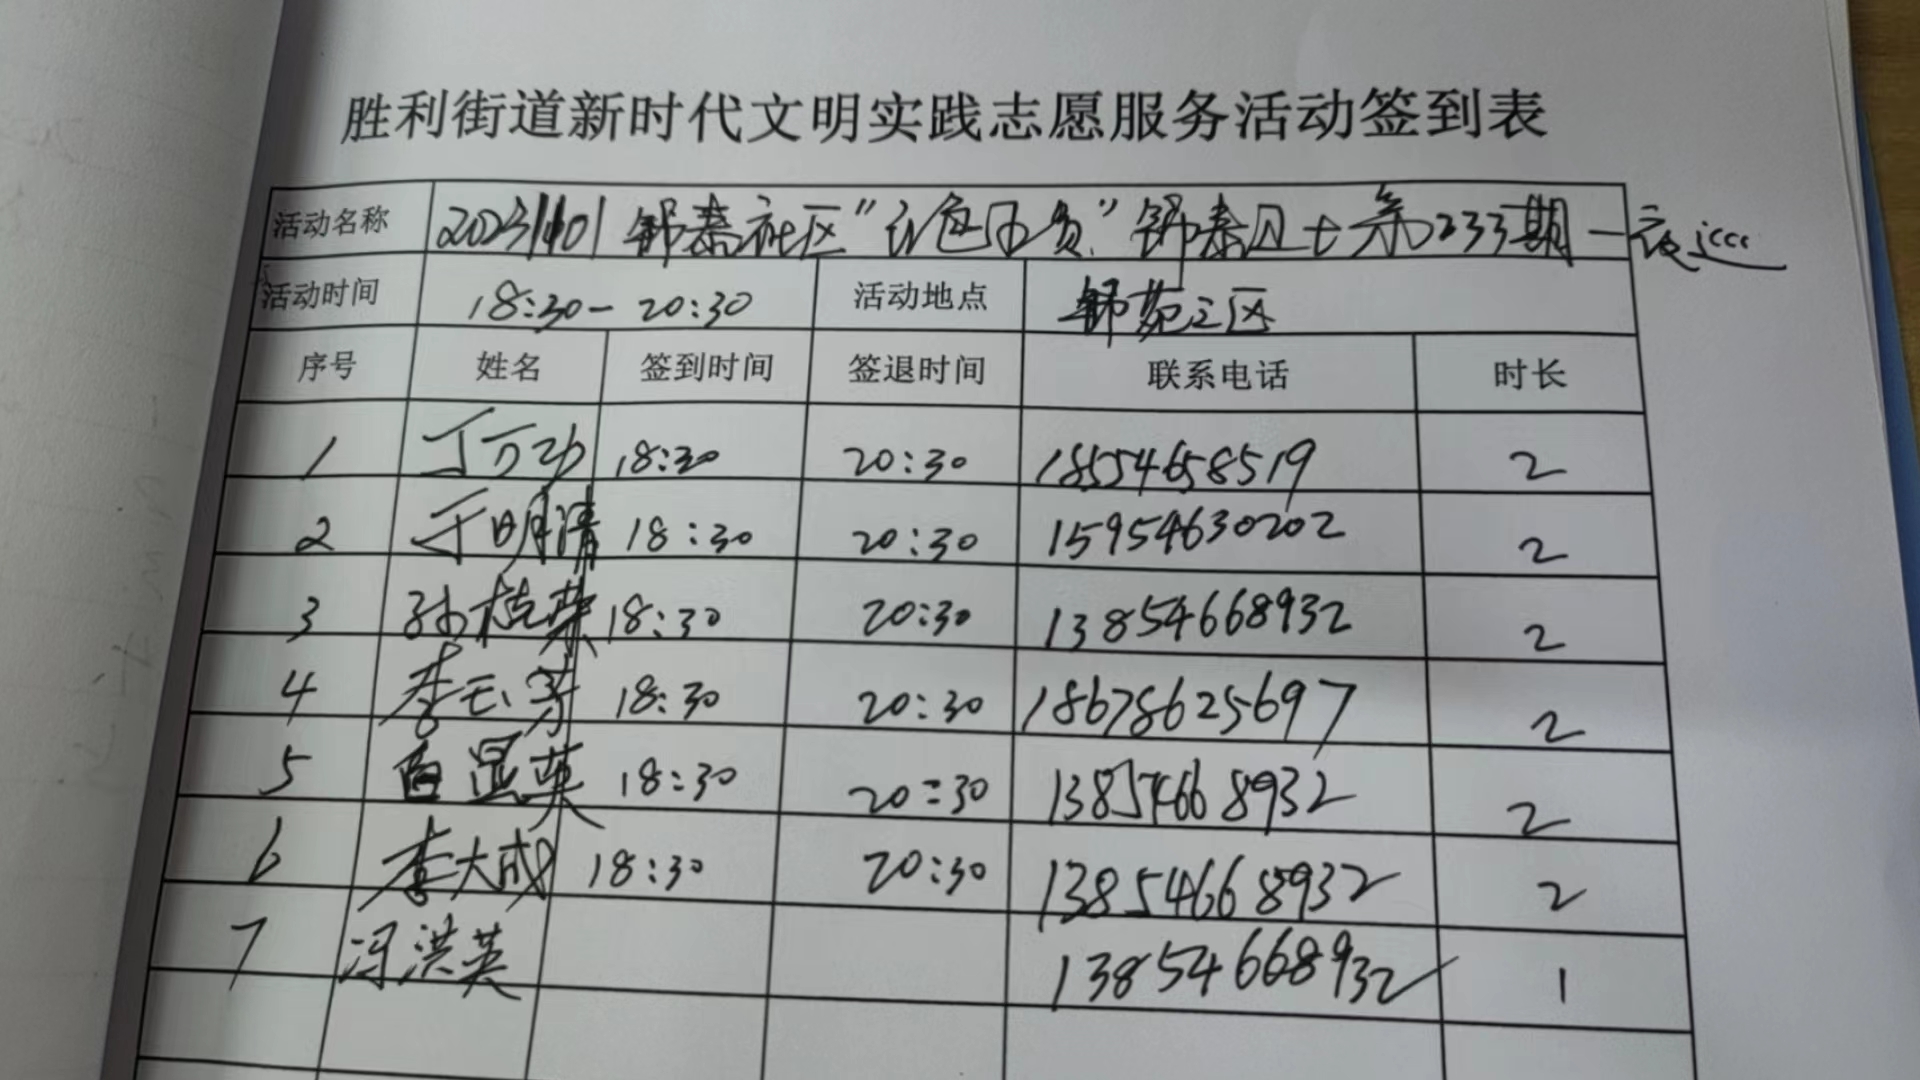 胜利街道新时代文明实践志愿服务活动签到表
活动名称 20231101 锦泰社区“红色 ”锦泰卫士第233期一夜巡
活动时间 18:30-20:30 活动地点 锦苑三区
序号 姓名 签到时间 签退时间 联系电话 时长
1 丁 18:30 20:30 18554658519 2
2 于明清 18:30 20:30 15954630202 2
3 孙桂荣 18:30 20:30 13854668932 2
4 李玉芳 18:30 20:30 18678625697 2
5 白显英 18:30 20:30 13854668932 2
6 李大成 18:30 20:30 13854668932 2
7 冯洪英 13854668932 1